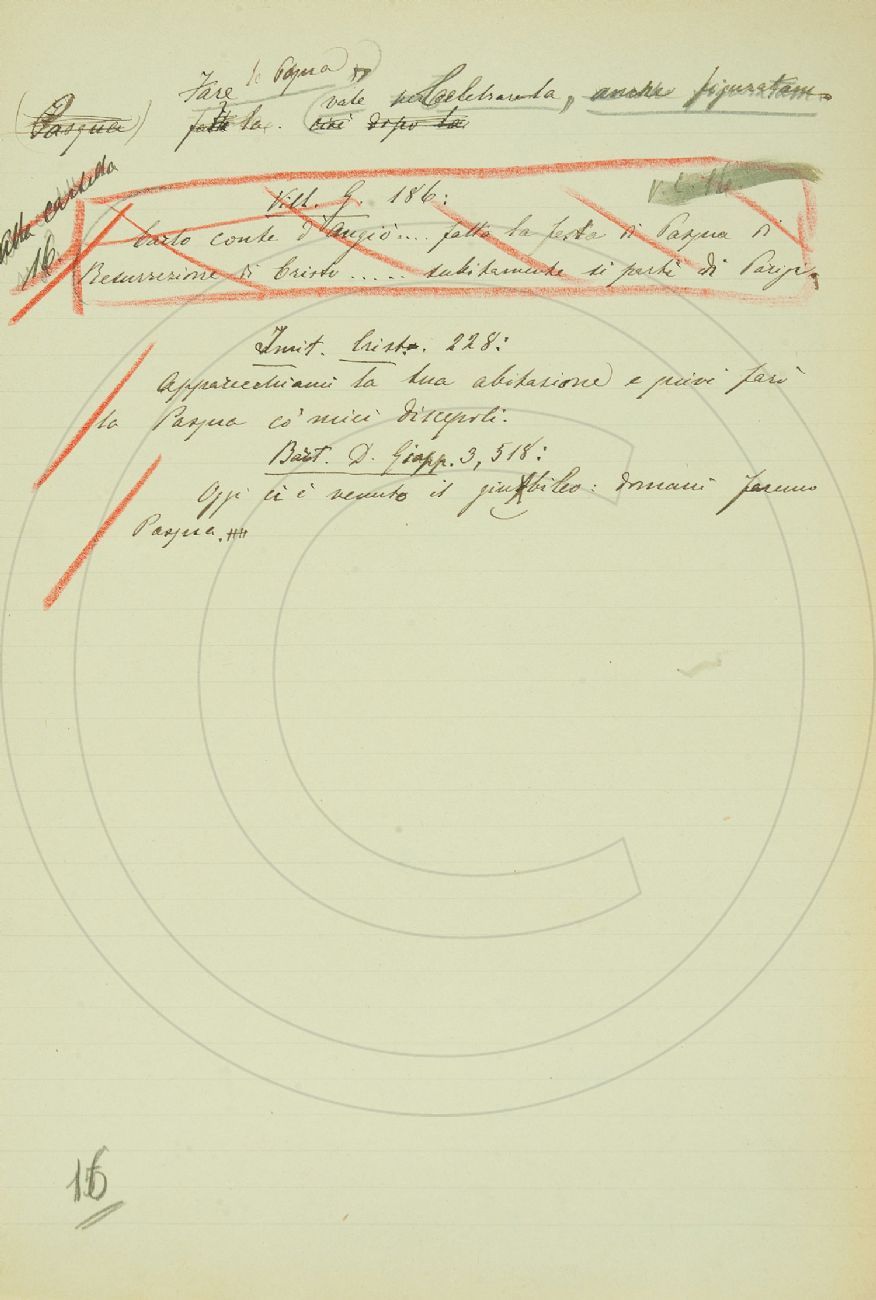 Fare la Pasqua
(Pasqua) fatta la. vale per Celebrarla, anche figuratam.
cioè dopo la
Alla cartella
16.
Vill. G. 186: V. c. 16
Carlo conte d'Angiò.... fatta la festa di Pasqua di
Resurrezione di Cristo ..... subitamente si partì di Parigi.
Imit. Crist. 228:
Apparecchiami la tua abitazione e quivi farò
la Pasqua co' miei discepoli.
Bart. D. Giapp. 3, 518:
Oggi ci è venuto il giubbileo: domani faremo
Pasqua.
16